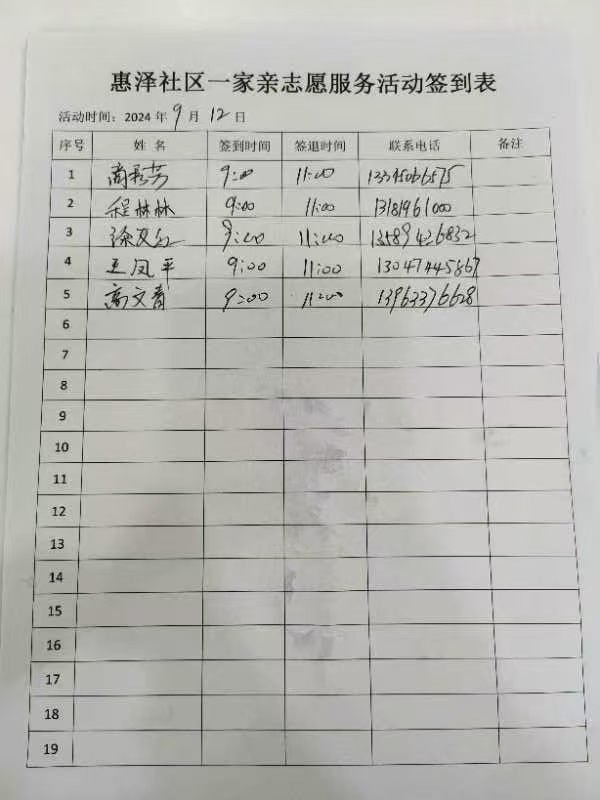 惠泽社区一家亲志愿服务活动签到表
活动时间：2024 年 9 月 12 日
序号 姓 名 签到时间 签退时间 联系电话 备注
1 9:00 11:00 13345066575
2 程林林 9:00 11:00 13181961000
3 徐友红 9:00 11:00 13589426832
4 王凤平 9:00 11:00 13047445867
5 高文青 9:00 11:00 13963376628
6
7
8
9
10
11
12
13
14
15
16
17
18
19